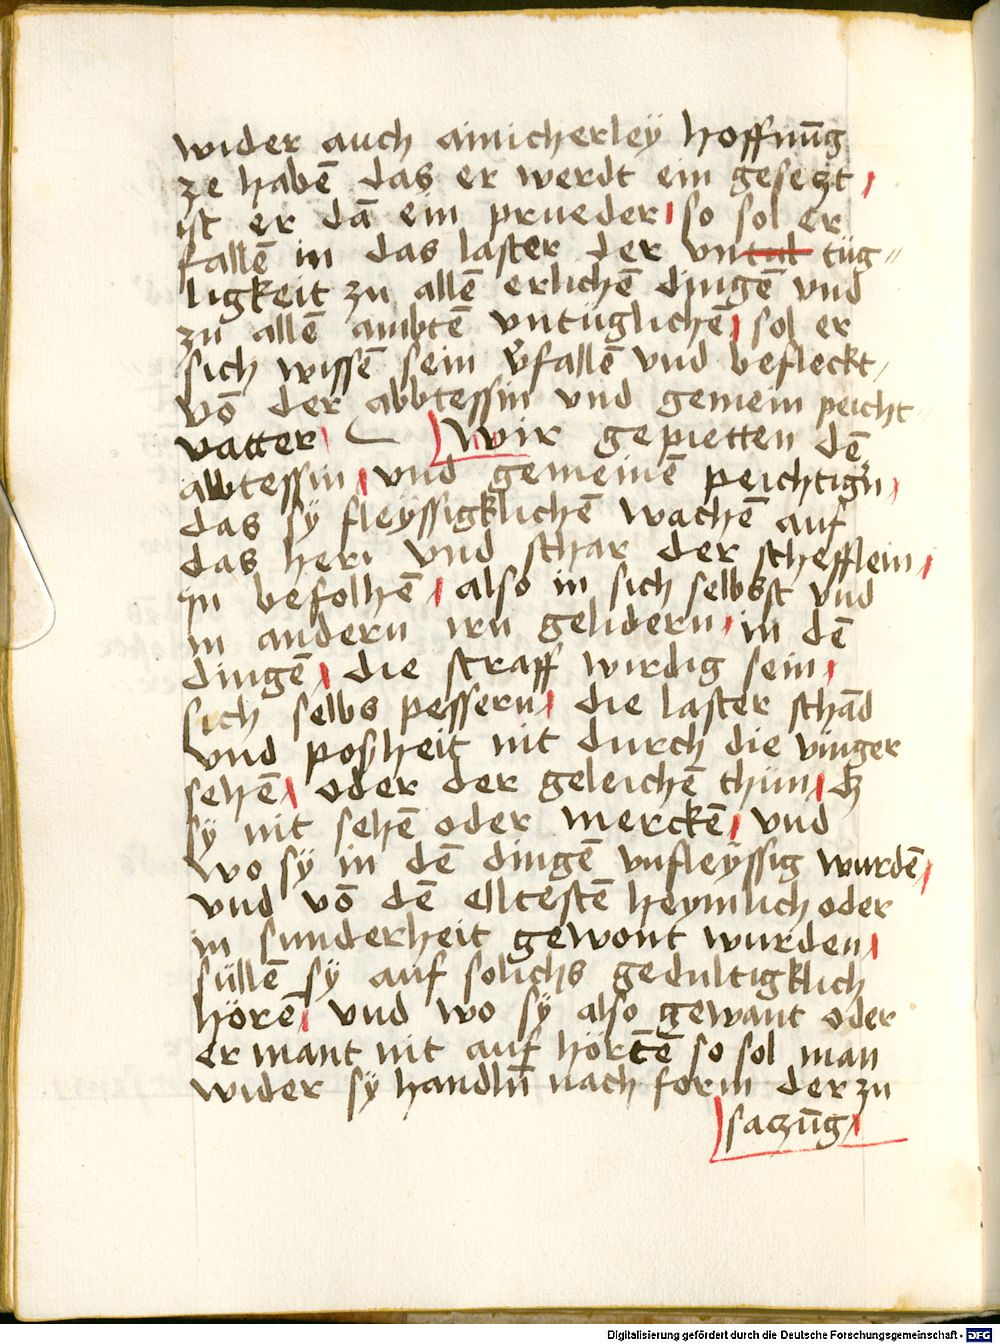 wider auch ainicherleÿ hoffnūg
ze habē das er werdt ein gesetzt /
ist er dā ein prueder / so sol er
fallē in das laster der vntat tüg〃
ligkeit zu allē erlichē dingē vnd
zu allē ambtē vntüglichē / sol er
sich wissē sein v̄fallē vnd befleckt /
vō der abbtessin vnd gemein peicht〃
vatter / wir gepietten dē
abtessin / vnd gemeinē peichtign̄ /
das sÿ fleÿssigklichē wachē auf
das heri vnd schar der schefflein /
in befolhē / also in sich selbst vnd
in andern irn gelidern / in dē
dingē / die straff wirdig sein /
sich selbs pessern / die laster schād
vnd posheit nit durch die vinger
sehē / oder der geleichē thün / dz
sÿ nit sehē oder merckē / vnd
wo sÿ in dē dingē vnfleÿssig wurdē /
vnd vō dē elltestē heymlich oder
in sunderheit gewont wurden /
süllē sÿ auf solichs gedultigklich
hörē / vnd wo sÿ also gewant oder
er mant nit auf hörtē so sol man
wider sÿ handln̄ nach form der zu
saczūg /
Digitalisierung gefördert durch die Deutsche Forschungsgemeinschaft - DFG